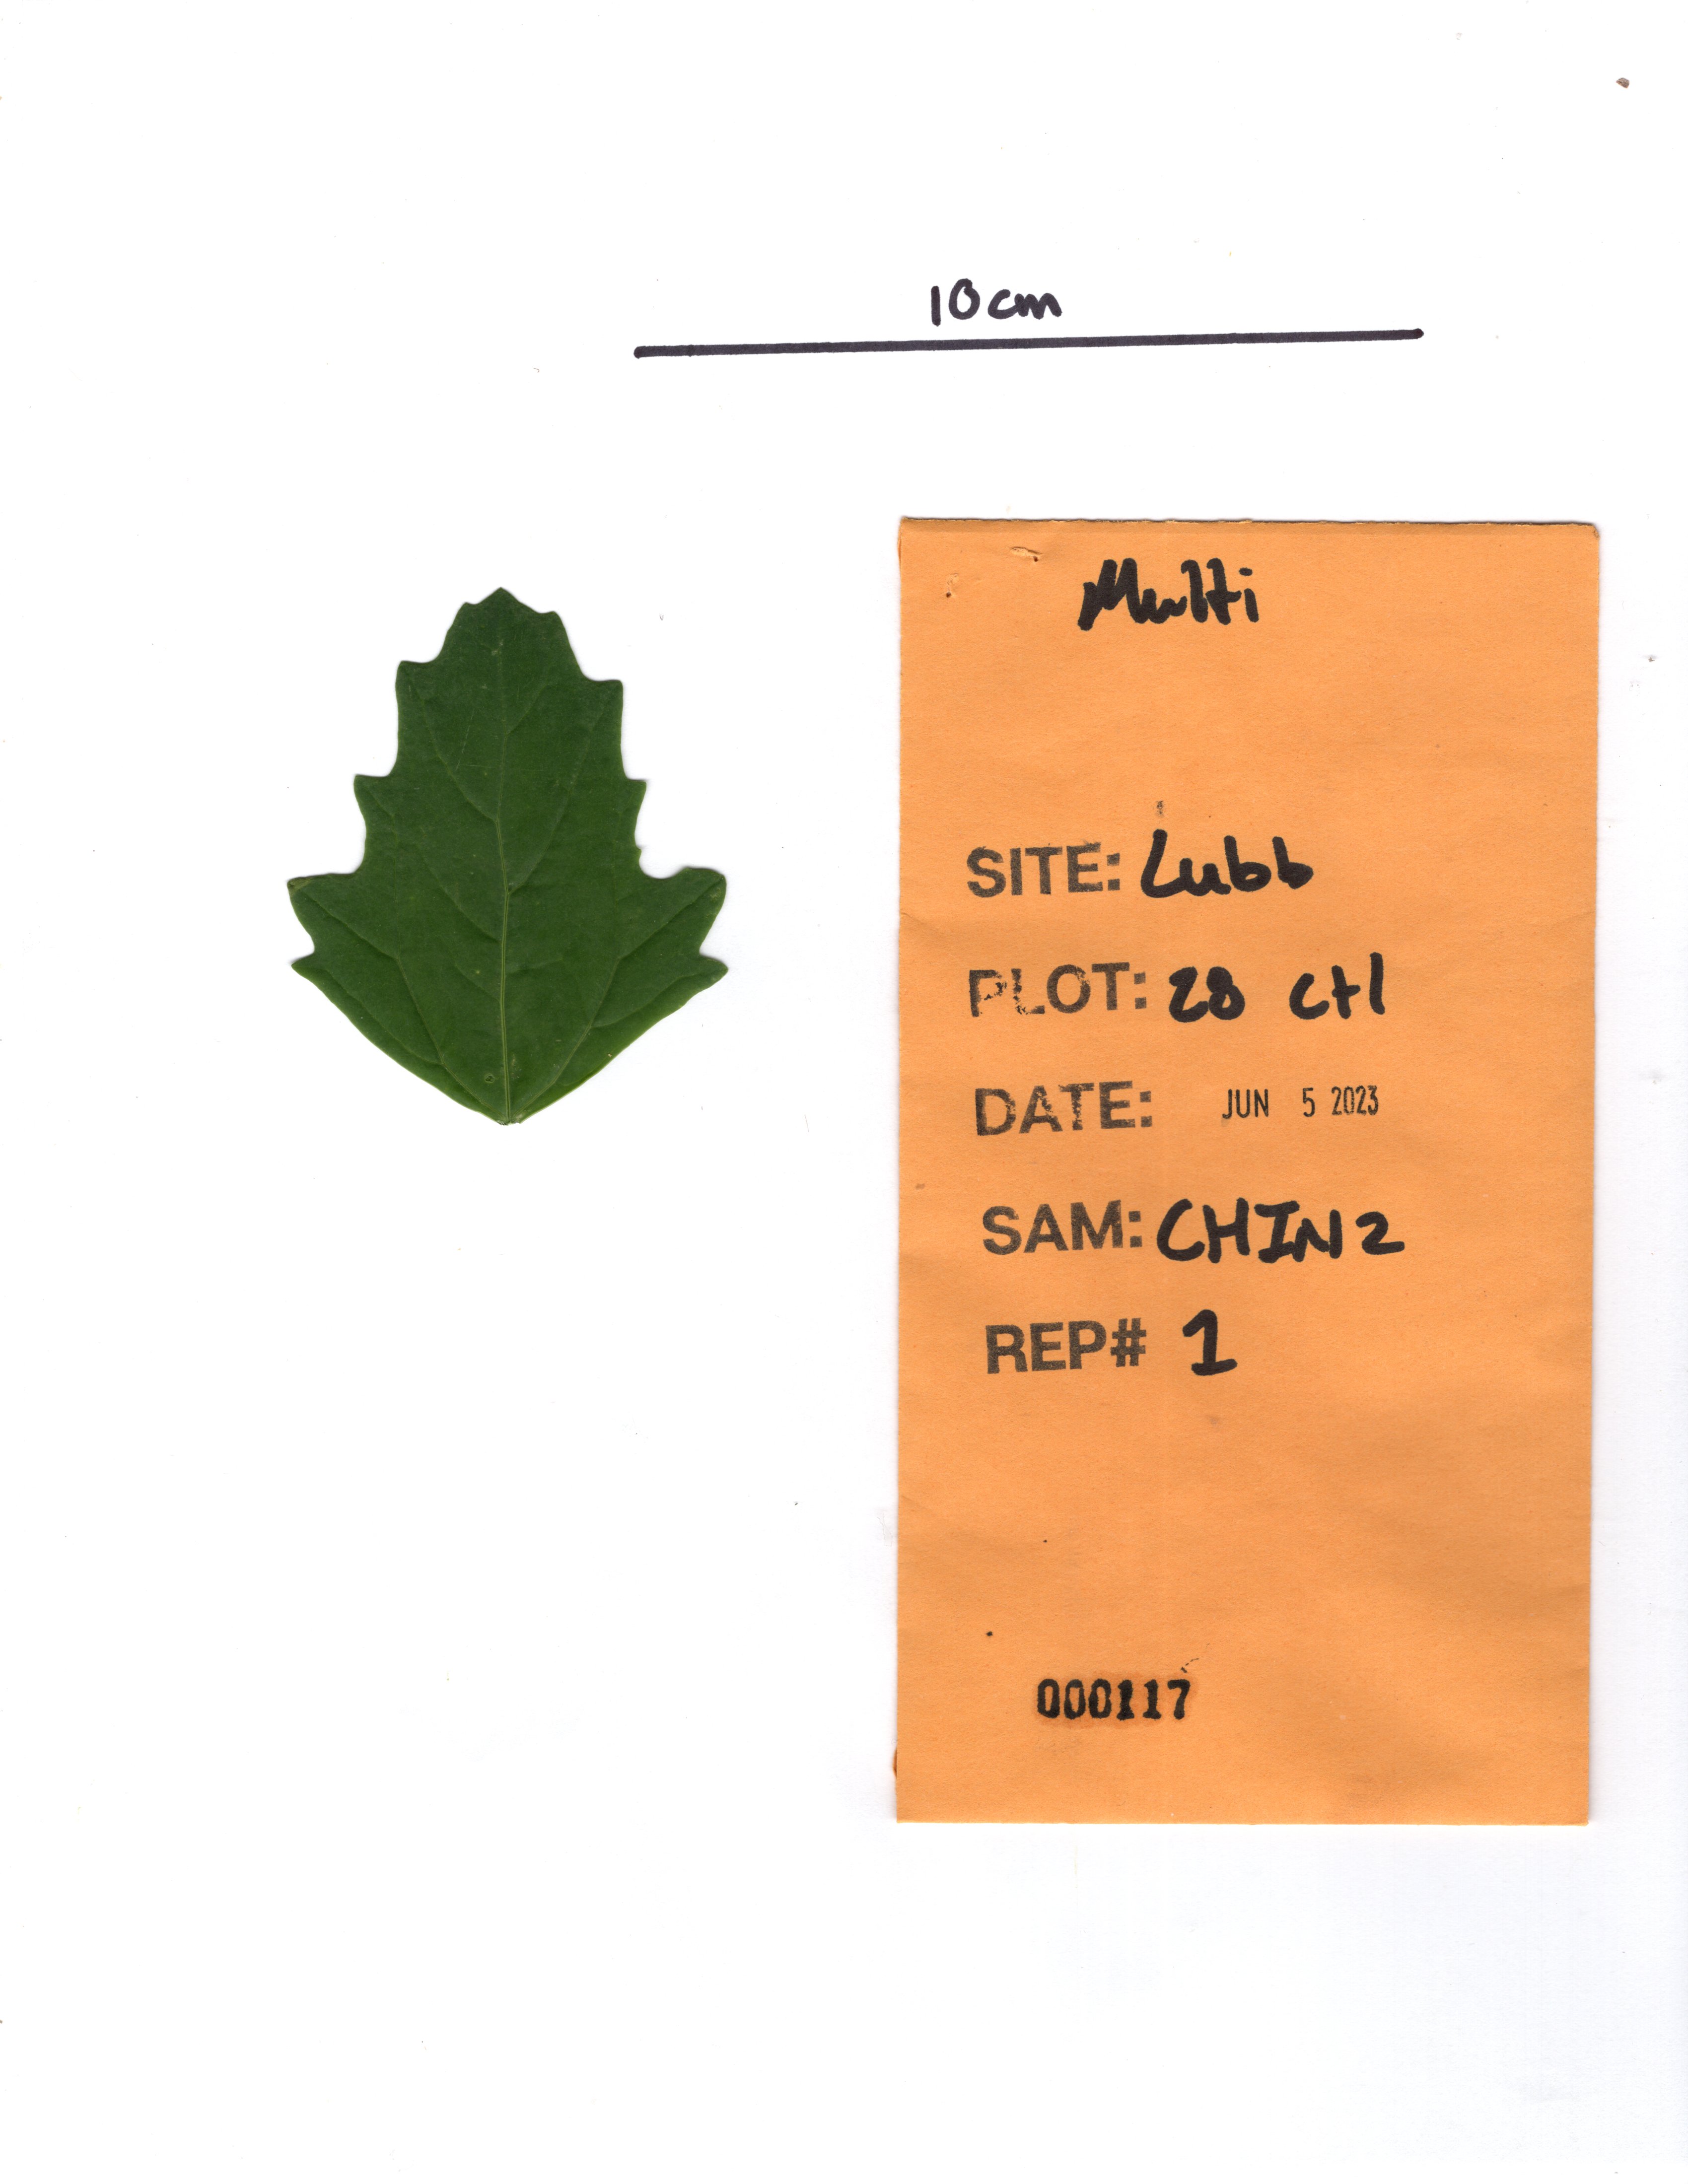 10cm
Multi
SITE: Lubb
PLOT: 28 Ctl
DATE: JUN 5 2023
SAM: CHIN2
REP# 1
000117